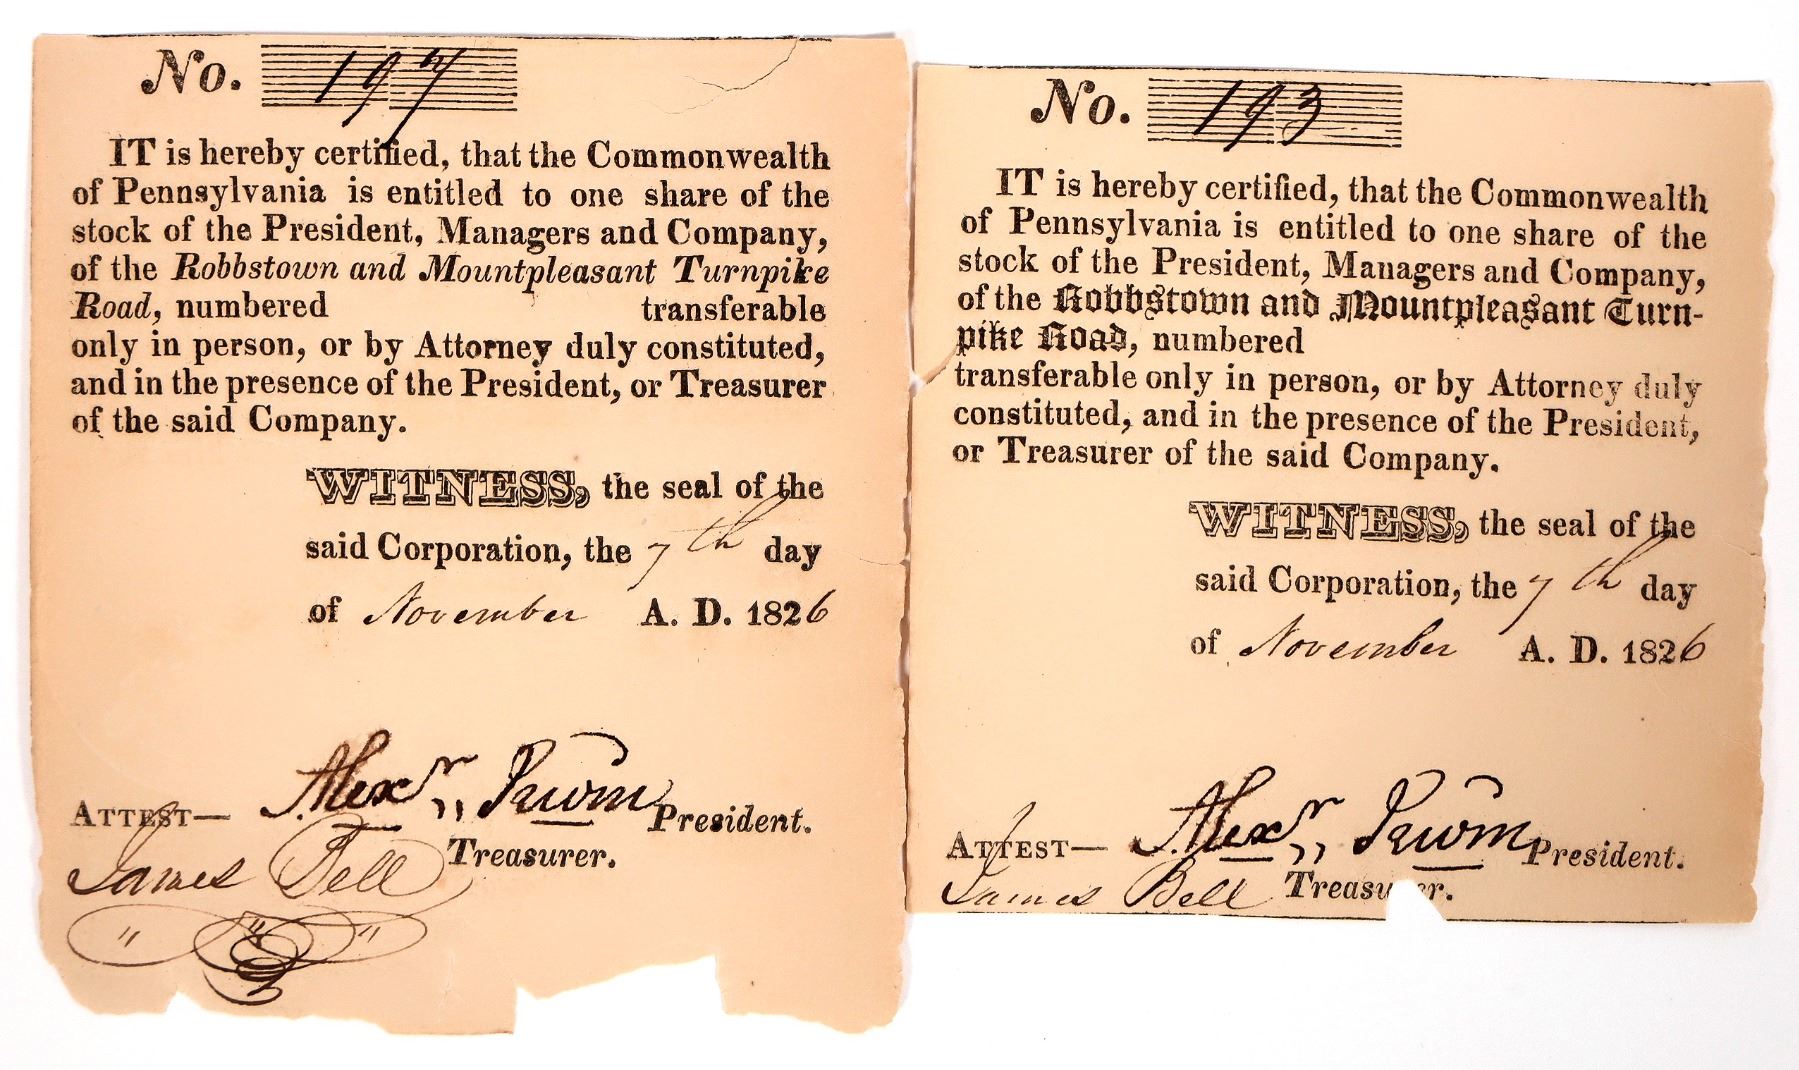 No. 197
IT is hereby certified, that the Commonwealth
of Pennsylvania is entitled to one share of the
stock of the President, Managers and Company,
of the Robbstown and Mountpleasant Turnpike
Road, numbered transferable
only in person, or by Attorney duly constituted,
and in the presence of the President, or Treasurer
of the said Company.
WITNESS, the seal of the
said Corporation, the 7th day
of November A. D. 1826
Alexr Irwin President.
ATTEST—
James Bell Treasurer.
No. 193
IT is hereby certified, that the Commonwealth
of Pennsylvania is entitled to one share of the
stock of the President, Managers and Company,
of the Robbstown and Mountpleasant Turn-
pike Road, numbered
transferable only in person, or by Attorney duly
constituted, and in the presence of the President,
or Treasurer of the said Company.
WITNESS, the seal of the
said Corporation, the 7th day
of November A. D. 1826
Alexr Irwin President.
ATTEST—
James Bell Treasurer.